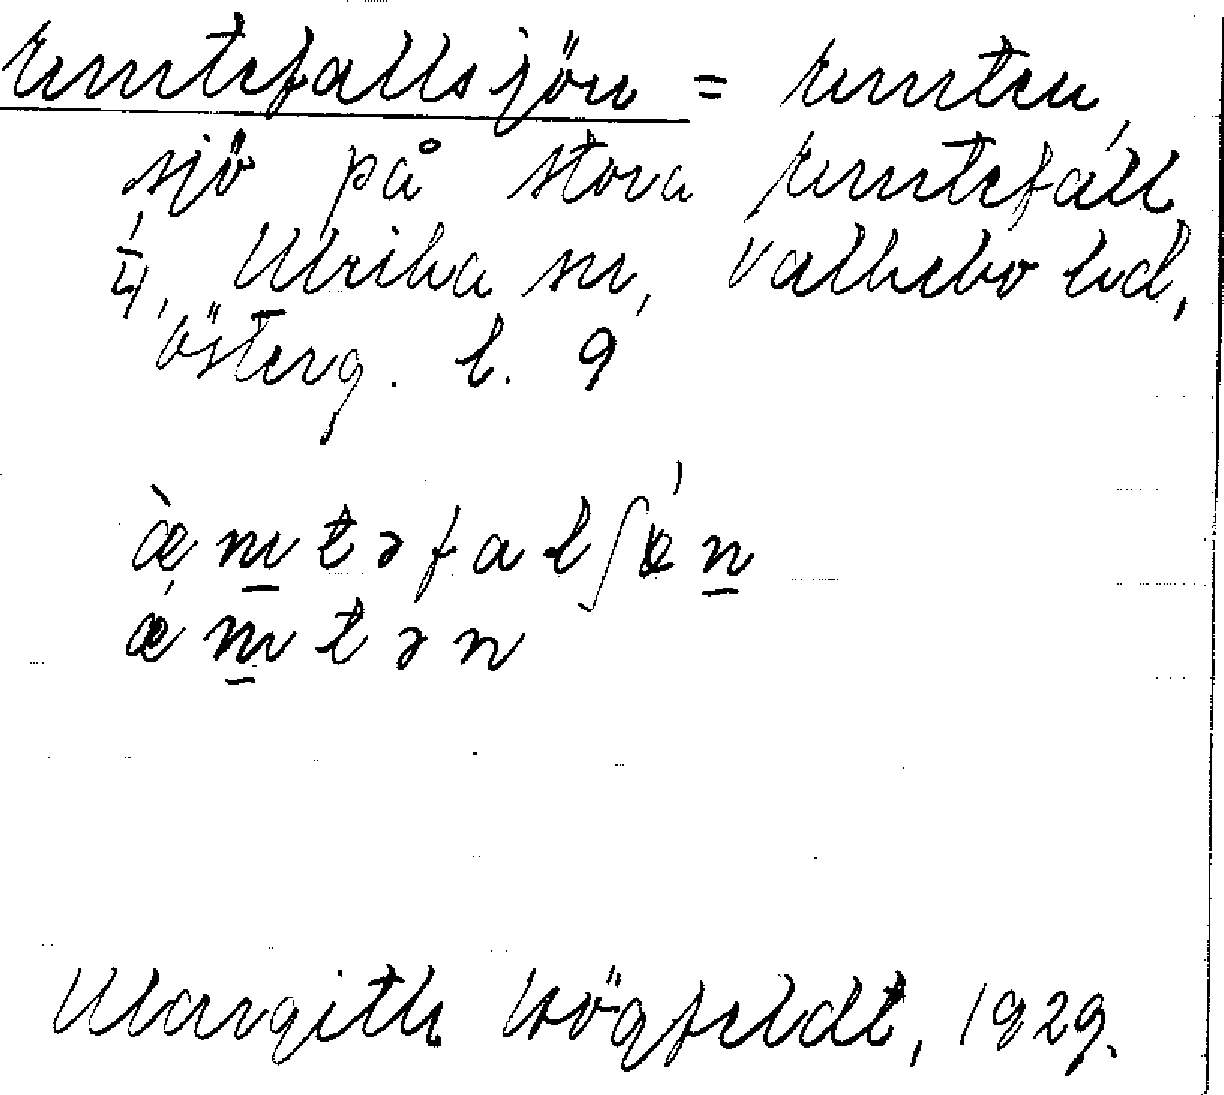 Emtefallssjön = Emten,
sjö på Stora Emtefall
1/4, Ulrika sn, Valkebo hd,
Österg. l. 9
æ̀m̲təfalʃǿn̲
ǽm̲tən
Margith Högfeldt, 1929.